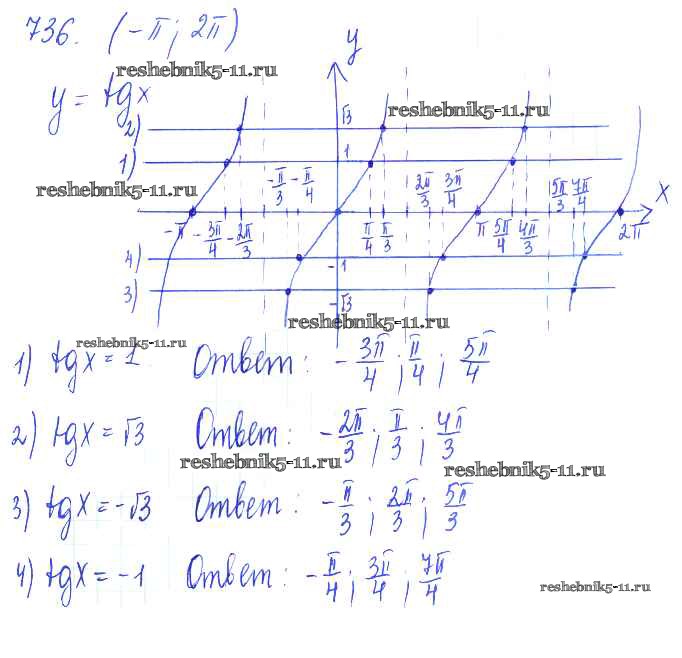 736. (-π; 2π)
reshebnik5-11.ru
y = tgx
y
reshebnik5-11.ru
√3
2)
1
1)
reshebnik5-11.ru
-π/3 -π/4
2π/3 3π/4
5π/3 7π/4
x
-π -3π/4 -2π/3
π/4 π/3
π 5π/4 4π/3
2π
4)
-1
3)
-√3
reshebnik5-11.ru
reshebnik5-11.ru
1) tgx = 1 Ответ: -3π/4; π/4; 5π/4
2) tgx = √3 Ответ: -2π/3; π/3; 4π/3
reshebnik5-11.ru
reshebnik5-11.ru
3) tgx = -√3 Ответ: -π/3; 2π/3; 5π/3
4) tgx = -1 Ответ: -π/4; 3π/4; 7π/4
reshebnik5-11.ru